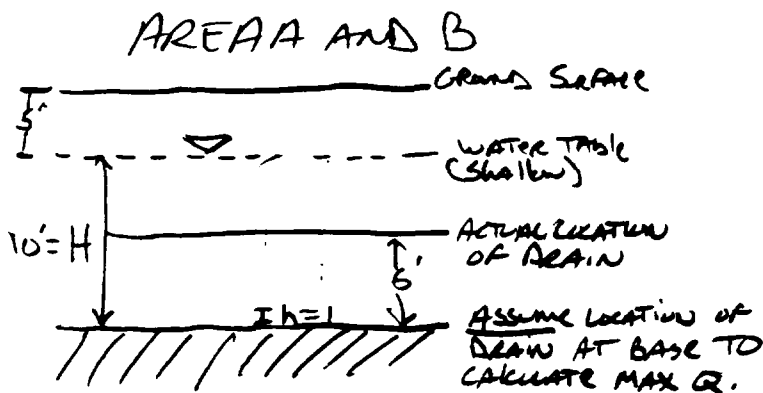 AREA A AND B
GROUND SURFACE
5'
WATER TABLE
(SHALLOW)
10' = H
ACTUAL LOCATION
OF DRAIN
6'
h=1
ASSUME LOCATION OF
DRAIN AT BASE TO
CALCULATE MAX Q.